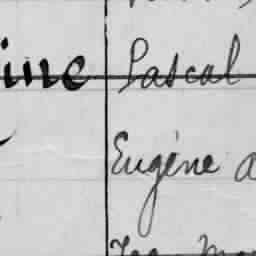 ine Pascal
Eugène a